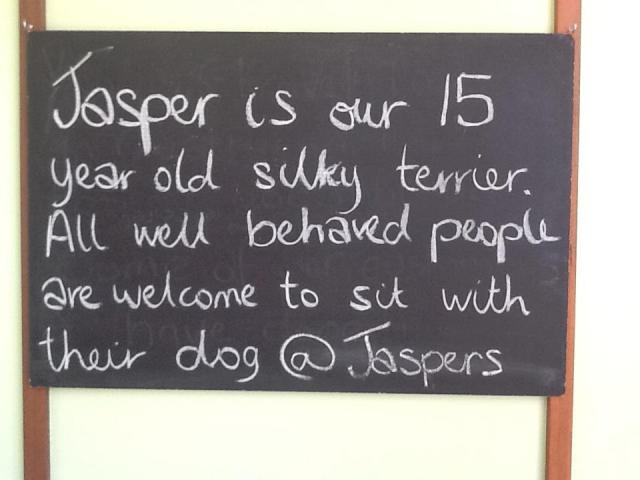 Jasper is our 15
year old silky terrier.
All well behaved people
are welcome to sit with
their dog @ Jaspers